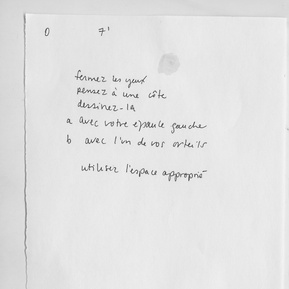 0 7'
fermez les yeux
pensez à une côte
dessinez-la
a avec votre épaule gauche
b avec l'un de vos orteils
utilisez l'espace approprié